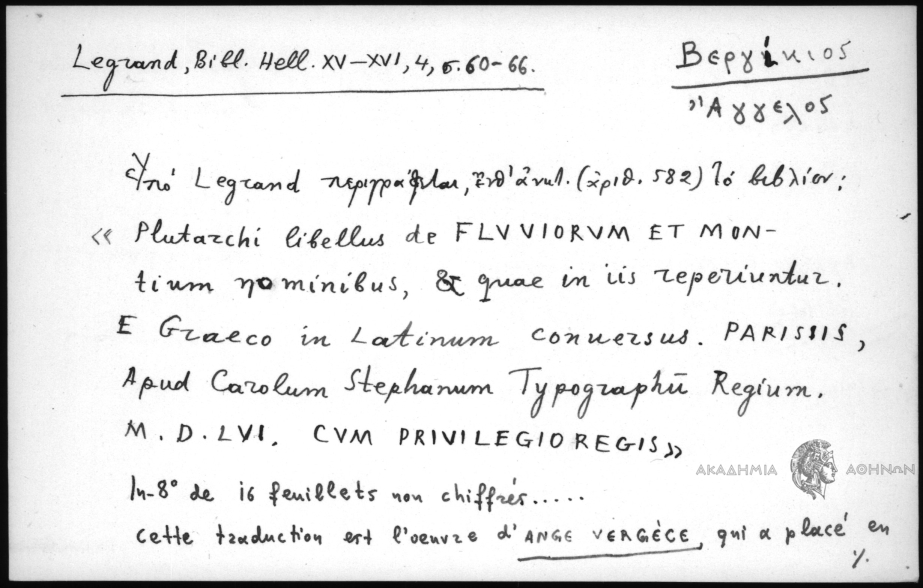 Legrand, Bibl. Hell. XV–XVI, 4, σ. 60-66.
Βεργίκιος
Ἄγγελος
Ὑπό Legrand περιγράφεται, ἔνθ' ἀνωτ. (ἀριθ. 582) τό βιβλίον:
« Plutarchi libellus de FLVVIORVM ET MON-
tium nominibus, & quae in iis reperiuntur.
E Graeco in Latinum conuersus. PARISIIS,
Apud Carolum Stephanum Typographū Regium.
M. D. LVI. CVM PRIVILEGIO REGIS »
ΑΚΑΔΗΜΙΑ ΑΘΗΝΩΝ
In-8° de 16 feuillets non chiffrés.....
cette traduction est l'oeuvre d'ANGE VERGÈCE, qui a placé en
./.